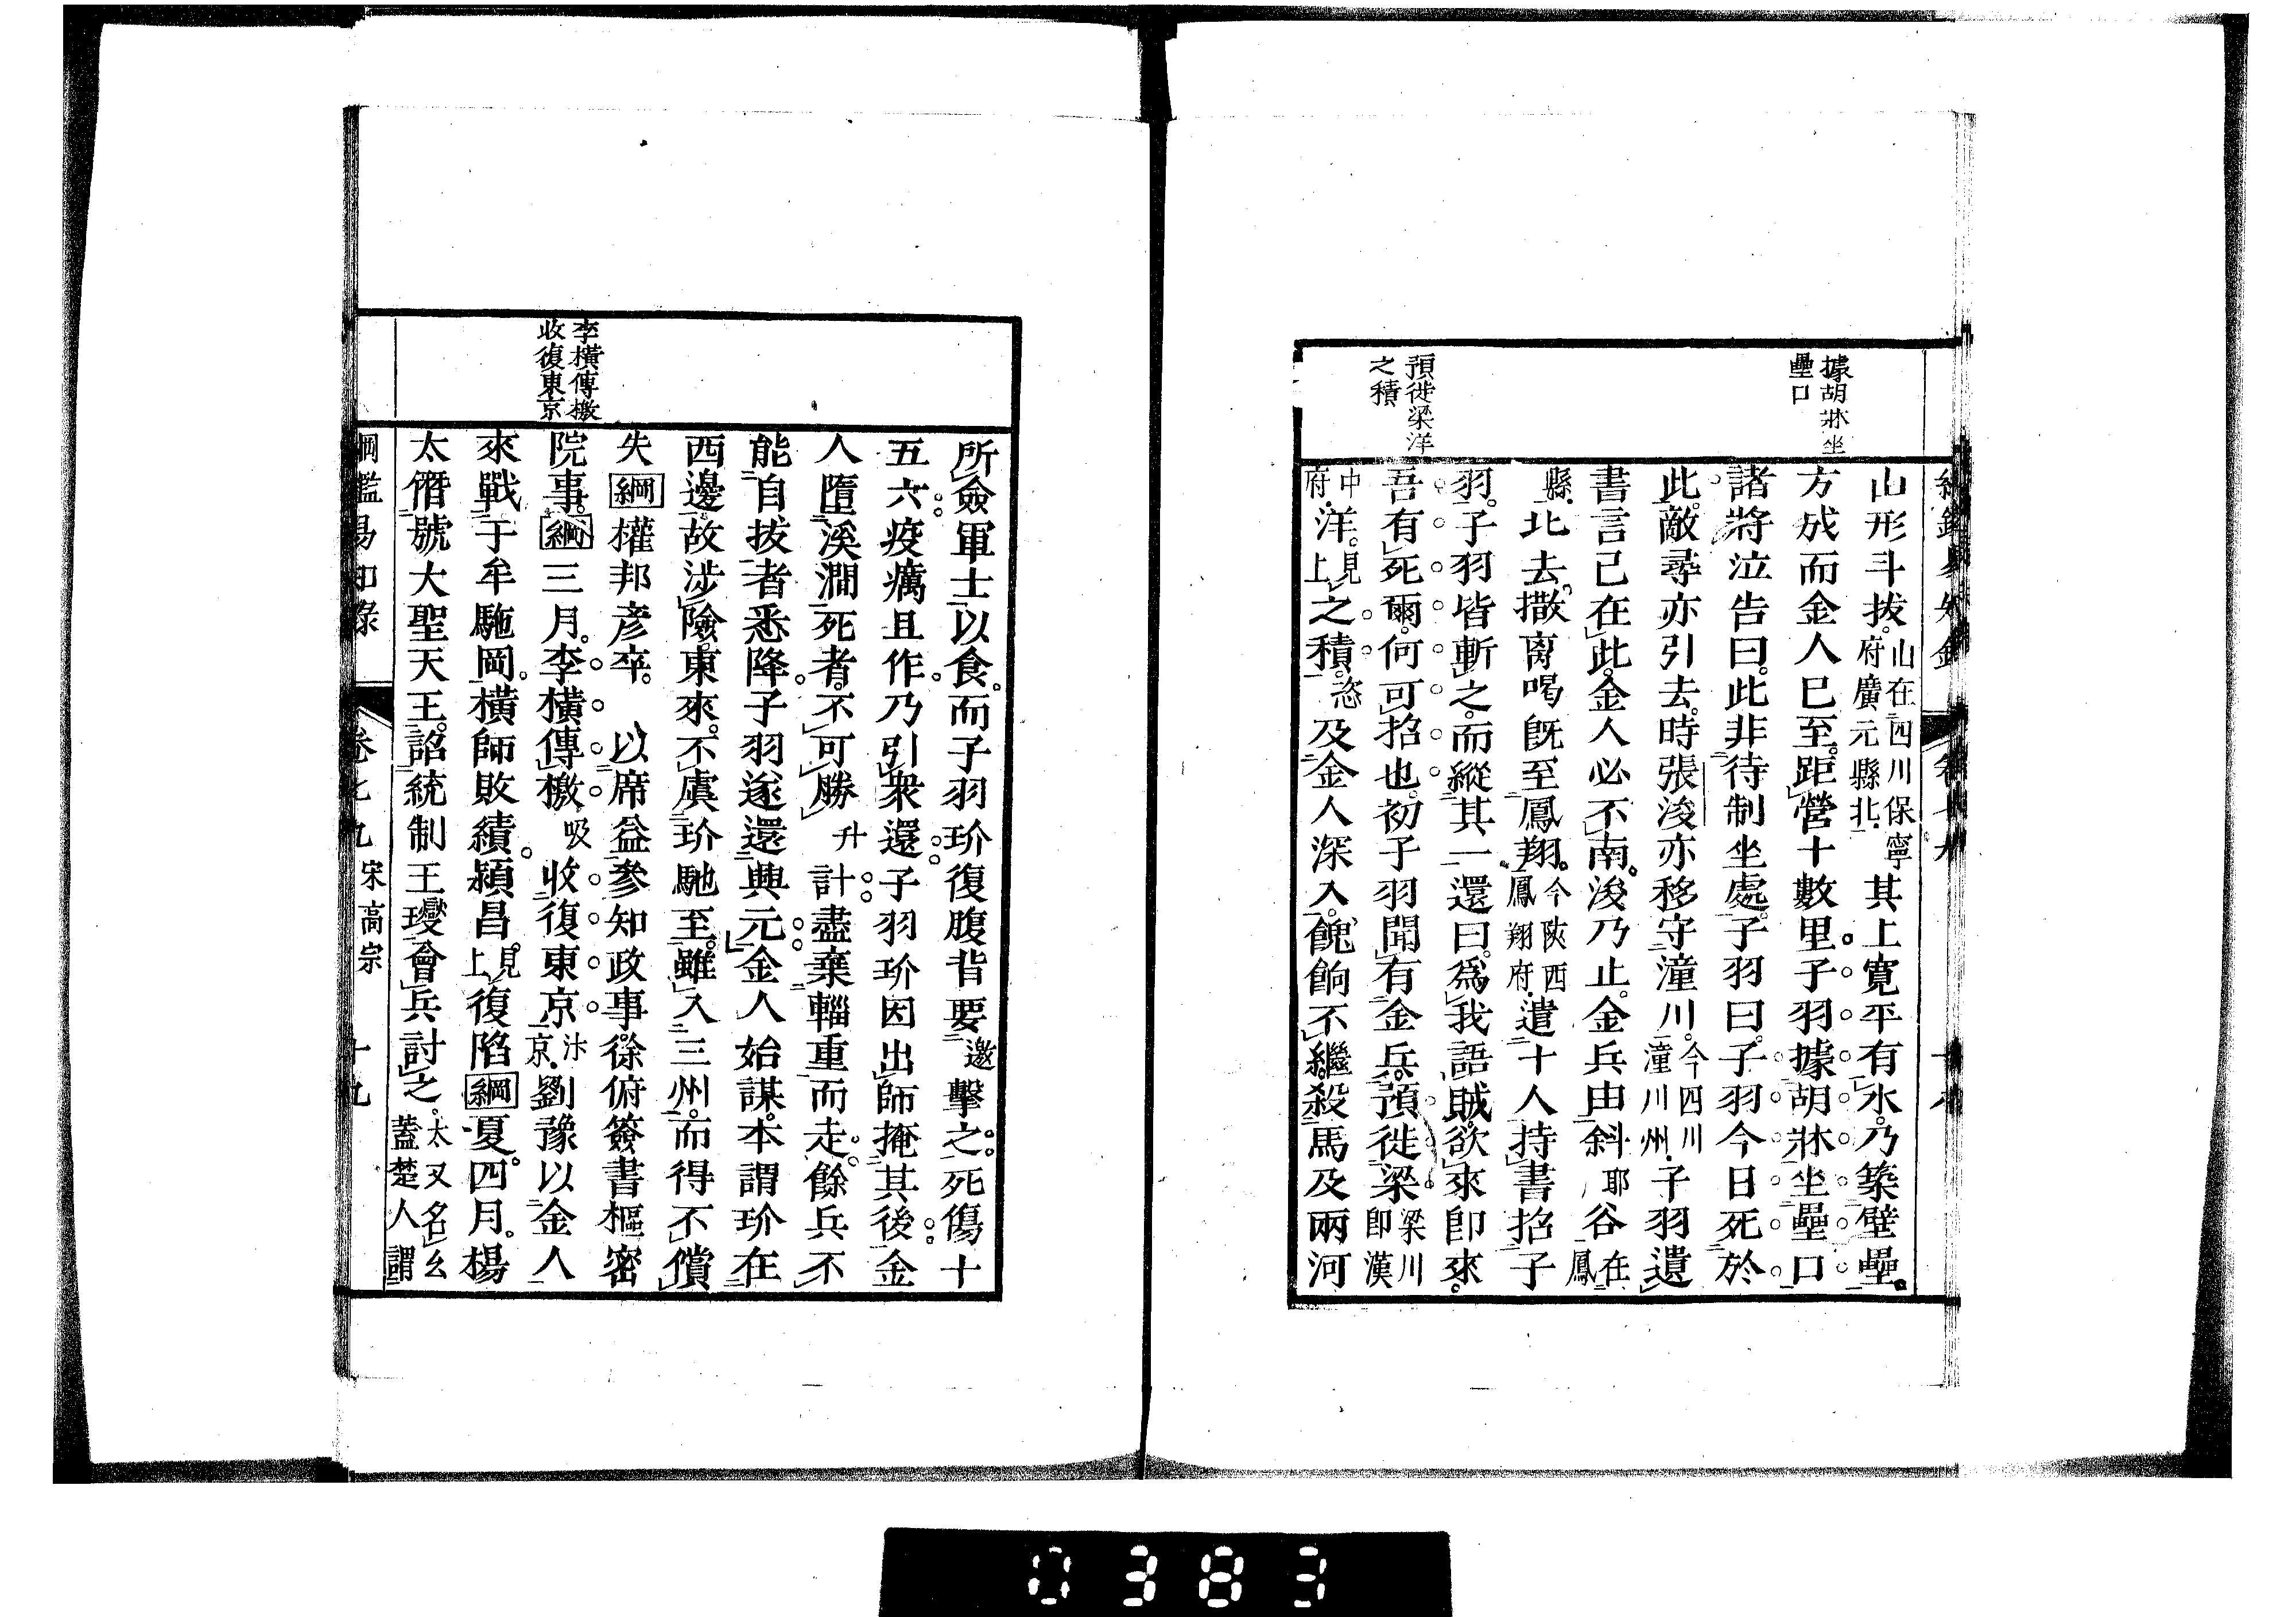 據胡牀坐
壘口
預徙梁洋
之積
山形斗拔。山在四川保寧府廣元縣北。其上寬平有水。乃築壁壘。
方成而金人已至。距營十數里。子羽據胡牀坐壘口
諸將泣告曰。此非待制坐處。子羽曰。子羽今日死於
此。敵尋亦引去。時張浚亦移守潼川。今四川潼川州。子羽遺
書言己在此。金人必不南。浚乃止。金兵由斜耶谷在鳳
縣。北去。撒离喝旣至鳳翔。今陝西鳳翔府。遣十人持書招子
羽。子羽皆斬之。而縱其一還曰。爲我語賊。欲來卽來。
吾有死爾。何可招也。初子羽聞有金兵。預徙梁梁川卽漢
中府。洋。見上之積。恣及金人深入。餽餉不繼。殺馬及兩河
李橫傳檄
收復東京
所僉軍士以食。而子羽玠復腹背要邀擊之。死傷十
五六。疫癘且作。乃引衆還。子羽玠因出師掩其後。金
人墮溪澗死者。不可勝升計。盡棄輜重而走。餘兵不
能自拔者悉降。子羽遂還興元。金人始謀。本謂玠在
西邊。故涉險。東來。不虞玠馳至。雖入三州。而得不償
失綱權邦彥卒。以席益參知政事。徐俯簽書樞密
院事。綱三月。李橫傳檄吸收復東京。汴京。劉豫以金人
來戰于牟駞岡。橫師敗績。潁昌。見上復陷綱夏。四月。楊
太僭號大聖天王。詔統制王𤫉會兵討之。太又名幺蓋楚人謂
綱鑑易知錄 卷七九 宋高宗 十九